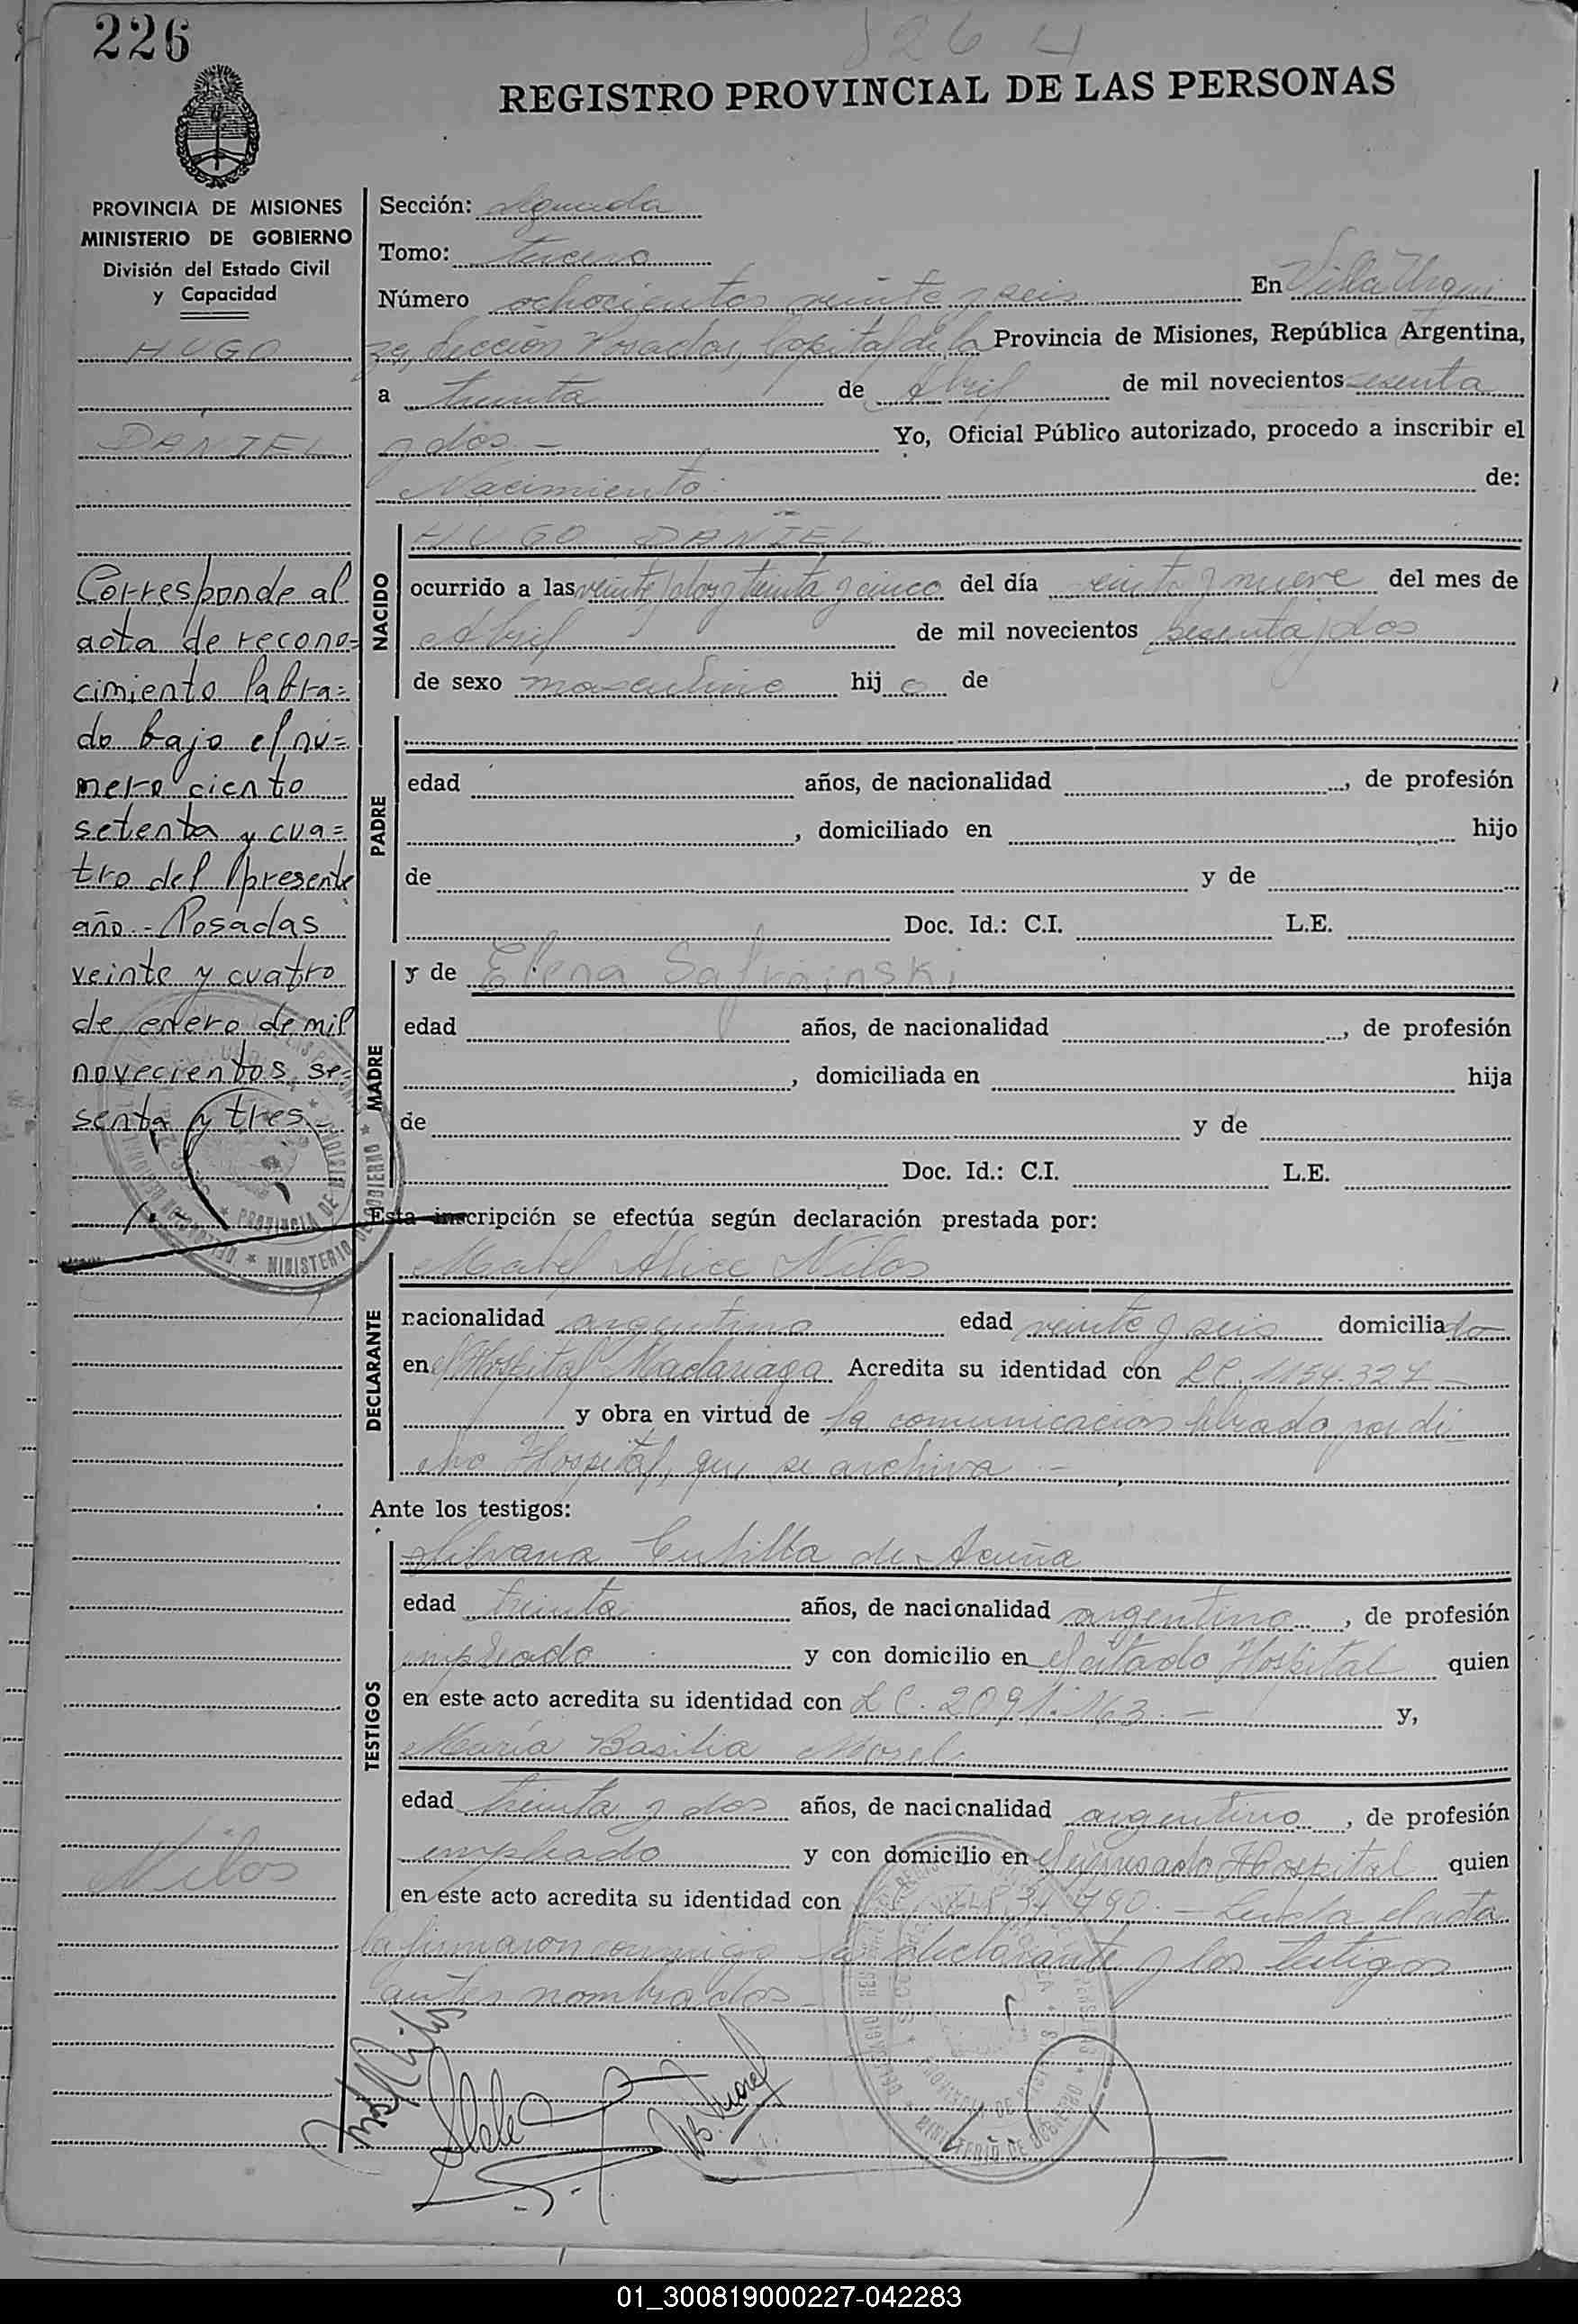 226
826
REGISTRO PROVINCIAL DE LAS PERSONAS
PROVINCIA DE MISIONES
MINISTERIO DE GOBIERNO
División del Estado Civil
y Capacidad
HUGO
DANIEL
Corresponde al
acta de recono=
cimiento labra=
do bajo el nú=
mero ciento
setenta y cua=
tro del presente
año.- Posadas
veinte y cuatro
de enero de mil
novecientos se=
senta y tres.-
Nilos
Sección: Segunda
Tomo: tercero
Número ochocientos veinte y seis En Villa Urqui
za, Sección Posadas, Capital de la Provincia de Misiones, República Argentina,
a treinta de Abril de mil novecientos sesenta
y dos.- Yo, Oficial Público autorizado, procedo a inscribir el
Nacimiento de:
NACIDO
HUGO DANIEL
ocurrido a las veinte y dos y treinta y cinco del día veinte y nueve del mes de
Abril de mil novecientos sesenta y dos
de sexo masculino hijo de
PADRE
edad años, de nacionalidad , de profesión
, domiciliado en hijo
de y de
Doc. Id.: C.I. L.E.
MADRE
y de Elena Safrainski
edad años, de nacionalidad , de profesión
, domiciliada en hija
de y de
Doc. Id.: C.I. L.E.
Esta inscripción se efectúa según declaración prestada por:
DECLARANTE
Mabel Alice Nilos
nacionalidad argentina edad veinte y seis domiciliado
en el Hospital Madariaga Acredita su identidad con LC. 1154.327 -
y obra en virtud de la comunicación librada por di-
cho Hospital, que se archiva.-
Ante los testigos:
TESTIGOS
Silvana Cubilla de Acuña
edad treinta años, de nacionalidad argentina , de profesión
empleada y con domicilio en el citado Hospital quien
en este acto acredita su identidad con LC. 2091.163.- y,
María Basilia Morel
edad treinta y dos años, de nacionalidad argentina , de profesión
empleada y con domicilio en el expresado Hospital quien
en este acto acredita su identidad con 34.790.- Leída el acta
la firmaron conmigo la declarante y los testigos
antes nombrados.-
01_300819000227-042283